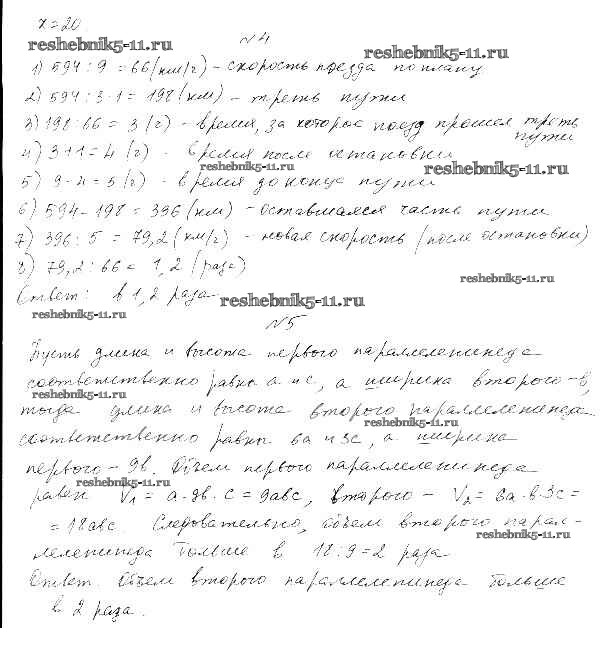 x=20
reshebnik5-11.ru
№4
reshebnik5-11.ru
1) 594 : 9 = 66 (км/г) - скорость поезда по плану
2) 594 : 3 · 1 = 198 (км) - треть пути
3) 198 : 66 = 3 (г) - время, за которое поезд прошел треть
пути
4) 3+1=4 (г) - время после остановки
reshebnik5-11.ru
reshebnik5-11.ru
5) 9-4=5 (г) - время до конца пути
6) 594-198 = 396 (км) - оставшаяся часть пути
7) 396 : 5 = 79,2 (км/г) - новая скорость (после остановки)
8) 79,2 : 66 = 1,2 (раза)
reshebnik5-11.ru
Ответ: в 1,2 раза
reshebnik5-11.ru
reshebnik5-11.ru
№5
Пусть длина и высота первого параллелепипеда
соответственно равна a и c, а ширина второго - b,
reshebnik5-11.ru
тогда длина и высота второго параллелепипеда
reshebnik5-11.ru
соответственно равны 6a и 3c, а ширина
первого - 9b. Объем первого параллелепипеда
reshebnik5-11.ru
равен V₁ = a·9b·c = 9abc, второго - V₂ = 6a·b·3c =
= 18abc. Следовательно, объем второго парал-
reshebnik5-11.ru
лелепипеда больше в 18:9=2 раза
Ответ. Объем второго параллелепипеда больше
в 2 раза.